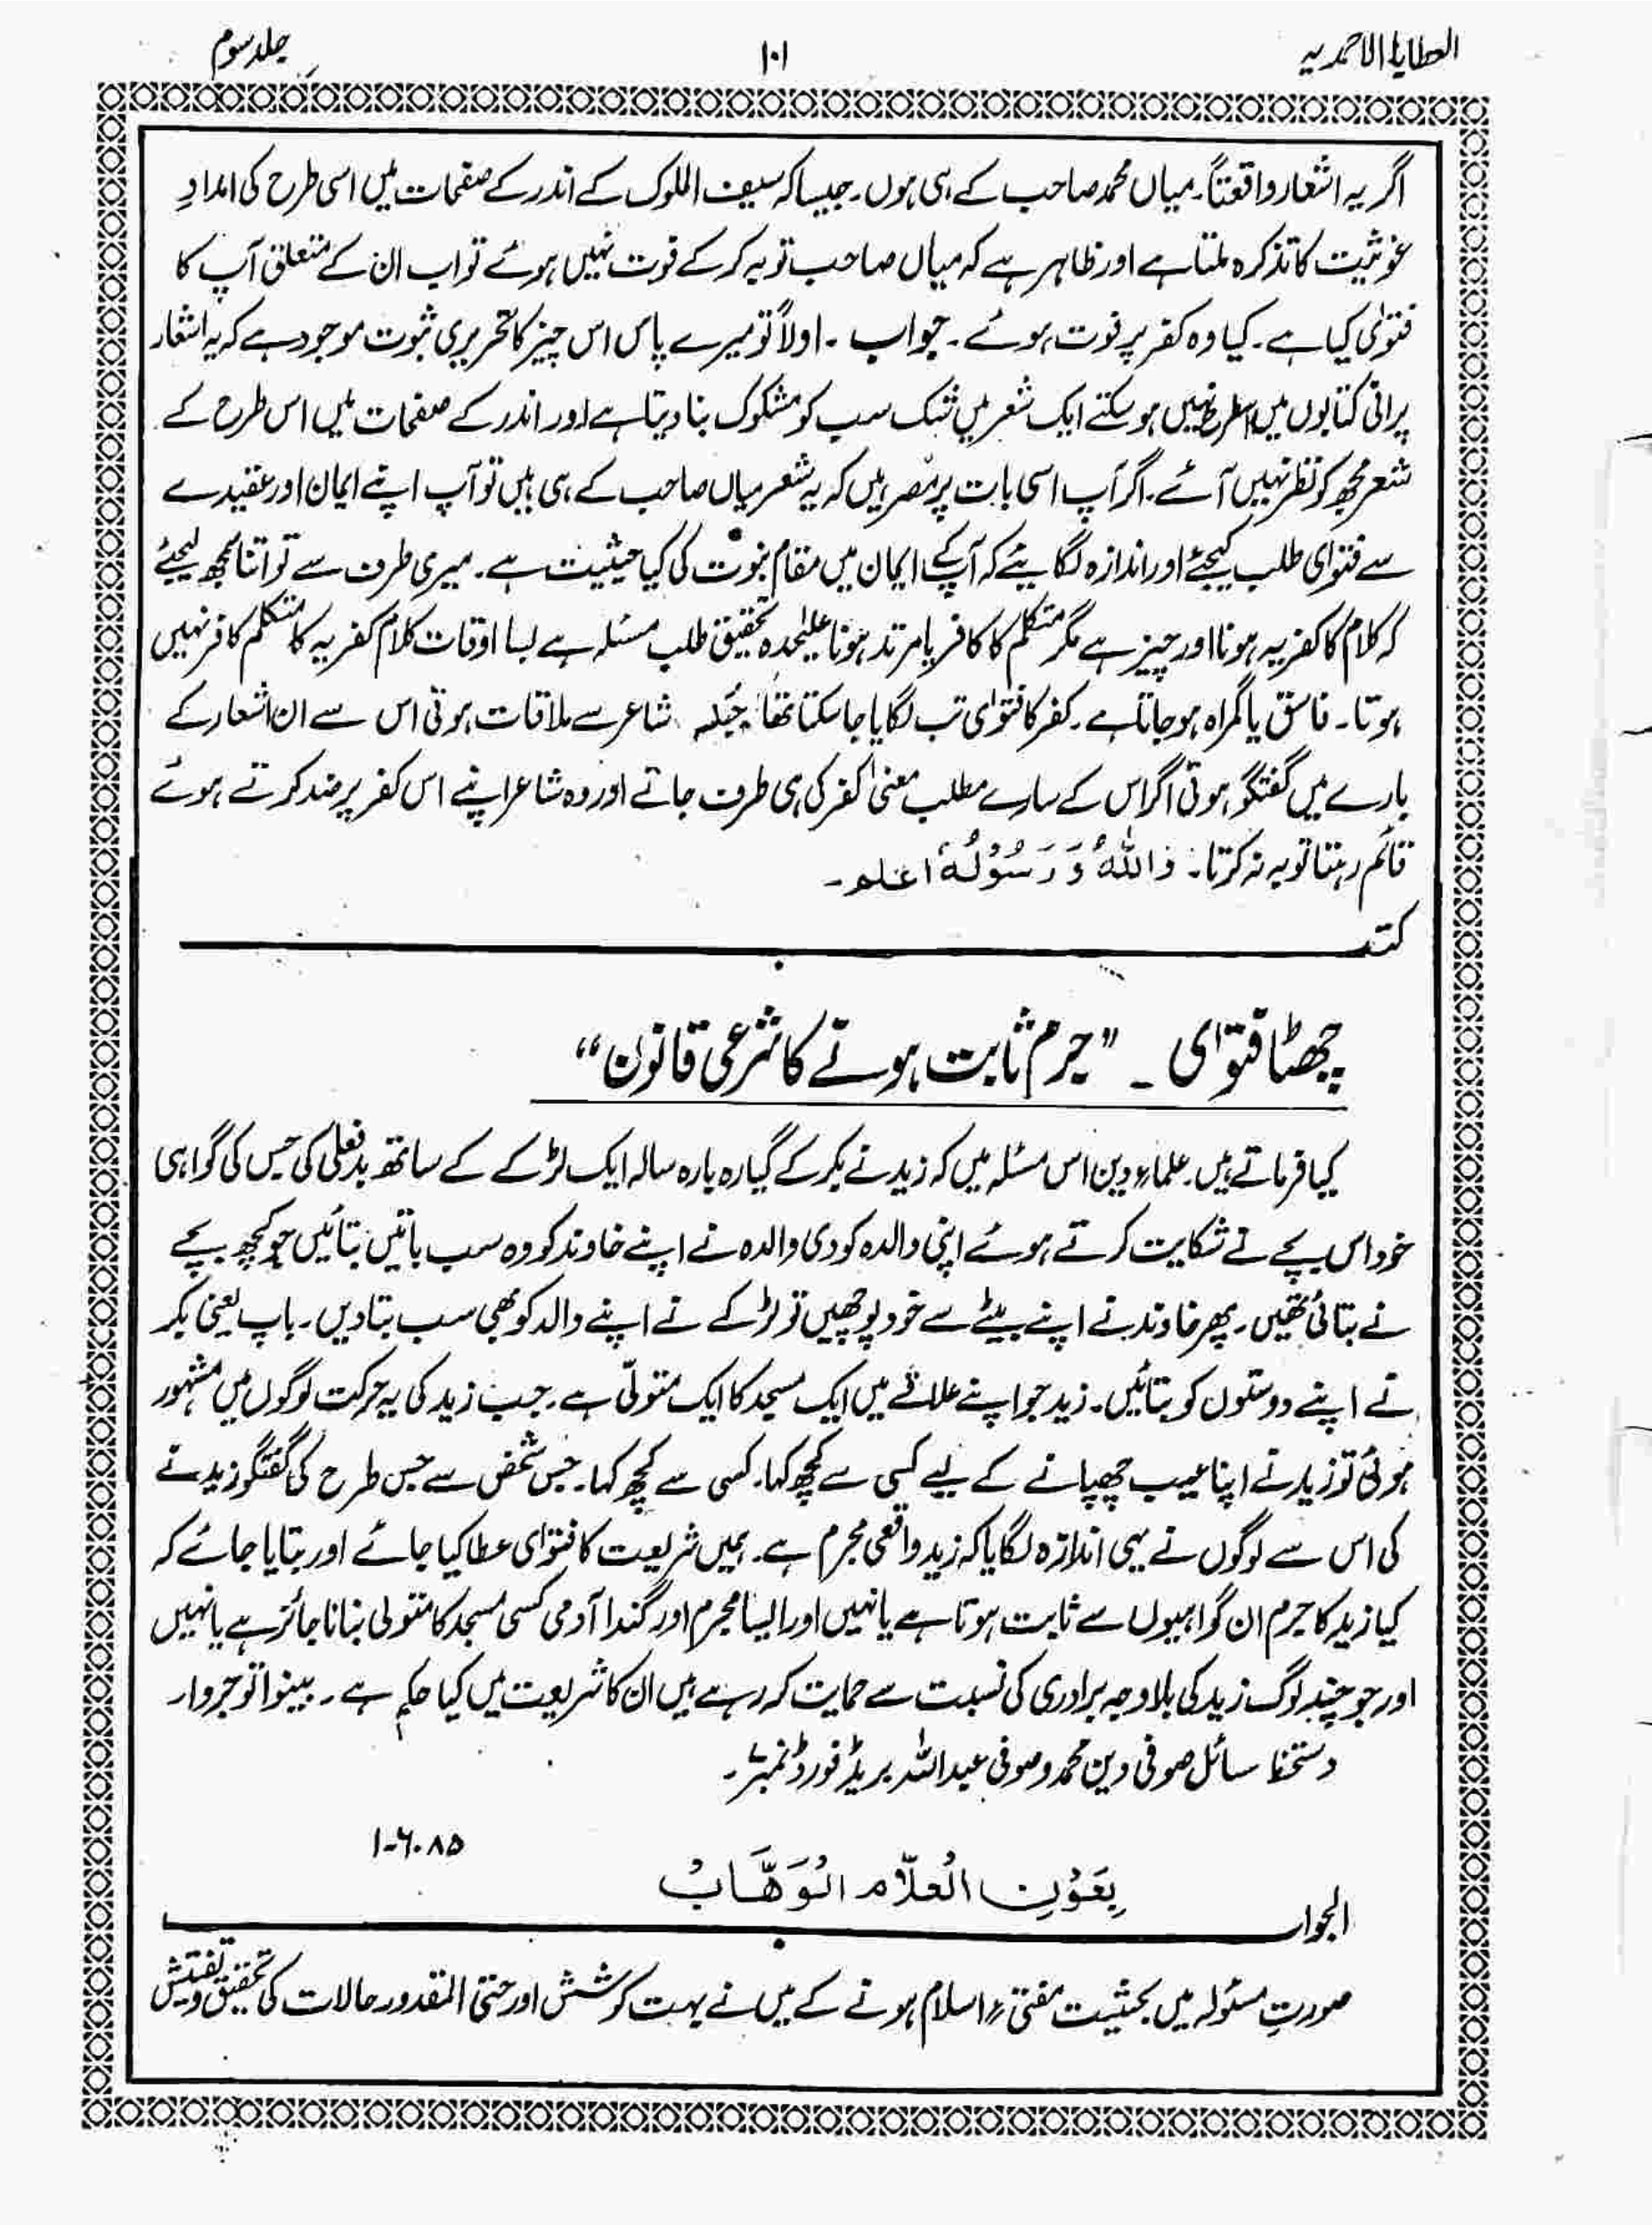 العطایا الاحمدیہ
۱۰۱
جلد سوم
اگر یہ اشعار واقعتاً۔ میاں محمد صاحب کے ہی ہوں۔ جیسا کہ سیف الملوک کے اندر کے صفحات میں اسی طرح کی امدادِ
غوثیت کا تذکرہ ملتا ہے اور ظاہر ہے کہ میاں صاحب توبہ کر کے فوت نہیں ہوئے تو اب ان کے متعلق آپ کا
فتوٰی کیا ہے۔ کیا وہ کفر پر فوت ہوئے۔ جواب۔ اولاً تو میرے پاس اس چیز کا تحریری ثبوت موجود ہے کہ یہ اشعار
پرانی کتابوں میں اسطرح نہیں ہو سکتے ایک شعر میں شک سب کو مشکوک بنا دیتا ہے اور اندر کے صفحات میں اس طرح کے
شعر مجھ کو نظر نہیں آئے۔ اگر آپ اسی بات پر مُصر ہیں کہ یہ شعر میاں صاحب کے ہی ہیں تو آپ اپنے ایمان اور عقیدے
سے فتوٰی طلب کیجئے اور اندازہ لگایئے کہ آپ کے ایمان میں مقام نبوت کی کیا حیثیت ہے۔ میری طرف سے تو اتنا سمجھ لیجئے
کہ کلام کا کفریہ ہونا اور چیز ہے مگر متکلم کا کافر یا مرتد ہونا علیٰحدہ تحقیق طلب مسئلہ ہے بسا اوقات کلام کفریہ کا متکلم کافر نہیں
ہوتا۔ فاسق یا گمراہ ہو جاتا ہے۔ کفر کا فتوٰی تب لگایا جا سکتا تھا جبکہ شاعر سے ملاقات ہوتی اس سے ان اشعار کے
بارے میں گفتگو ہوتی اگر اس کے سارے مطلب معنیٰ کفر کی ہی طرف جاتے اور وہ شاعر اپنے اس کفر پر ضد کرتے ہوئے
قائم رہتا توبہ نہ کرتا۔ وَاللّٰہُ وَ رَسُوْلُہٗ اعلم۔
کتبہ
چھٹا فتوٰی ۔ ”جرم ثابت ہونے کا شرعی قانون“
کیا فرماتے ہیں علماءِ دین اس مسئلہ میں کہ زید نے بکر کے گیارہ بارہ سالہ ایک لڑکے کے ساتھ بدفعلی کی جس کی گواہی
خود اس بچے نے شکایت کرتے ہوئے اپنی والدہ کو دی والدہ نے اپنے خاوند کو وہ سب باتیں بتائیں جو کچھ بچے
نے بتائی تھیں۔ پھر خاوند نے اپنے بیٹے سے خود پوچھیں تو لڑکے نے اپنے والد کو بھی سب بتا دیں۔ باپ یعنی بکر
نے اپنے دوستوں کو بتائیں۔ زید جو اپنے علاقے میں ایک مسجد کا ایک متولّی ہے۔ جب زید کی یہ حرکت لوگوں میں مشہور
ہوئی تو زید نے اپنا عیب چھپانے کے لیے کسی سے کچھ کہا۔ کسی سے کچھ کہا۔ جس شخص سے جس طرح کی گفتگو زید نے
کی اس سے لوگوں نے یہی اندازہ لگایا کہ زید واقعی مجرم ہے۔ ہمیں شریعت کا فتوٰی عطا کیا جائے اور بتایا جائے کہ
کیا زید کا جرم ان گواہیوں سے ثابت ہوتا ہے یا نہیں اور ایسا مجرم اور گندا آدمی کسی مسجد کا متولی بنانا جائز ہے یا نہیں
اور جو چند لوگ زید کی بلاوجہ برادری کی نسبت سے حمایت کر رہے ہیں ان کا شریعت میں کیا حکم ہے۔ بینوا توجروا۔
دستخط سائل صوفی دین محمد و صوفی عبداللہ بریڈ فورڈ نمبر
۱-۶-۸۵
بِعَوْنِ الْعَلَّامِ الْوَھَّابْ
الجواب
صورتِ مسئولہ میں بحیثیت مفتیٔ اسلام ہونے کے میں نے بہت کوشش اور حتی المقدور حالات کی تحقیق و تفتیش